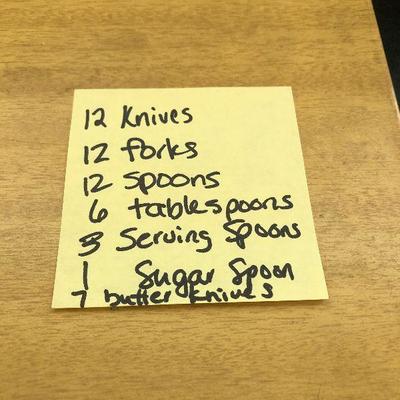 12 Knives
12 forks
12 spoons
6 tablespoons
3 Serving Spoons
1 Sugar Spoon
7 butter knives